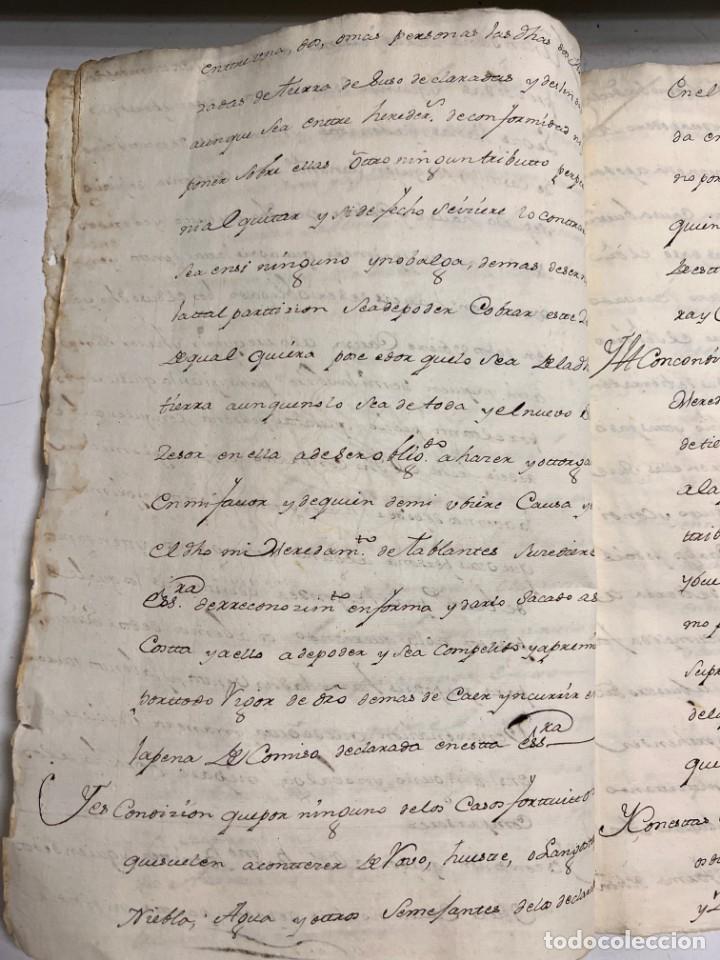 entre una, dos, o mas personas las dhas dos
zadas de tierra de suso declaradas y deslin
aunque sea entre hereder.s de conformidad ni
poner sobre ellas otro ningun tributto perpe
ni al quitar y si de fecho se iciere lo contra
sea en si ninguno y no balga, demas de ser n
la tal partizion sea de poder Cobrar este
de qual quiera poseedor que lo sea de la dh
tierra aunque no lo sea de toda y el nuevo
zesor en ella a de ser oblig.do a hazer y ottorga
en mi favor y de quien de mi ubiere Causa y
el dho mi Heredam.to de tablantes suzediere
ess.ra de rreconozim.to en forma y darlo sacado a s
Costta y a ello a de poder y sea Compelido y aprem
por ttodo Vigor de dro demas de Caer y ncurrir e
la pena de Comiso declarada en estta ess.ra
Y es Condizion que por ninguno de los Casos forttuitto
que suelen aconttezer de fuego, hueste, o Langos
Niebla, Agua y ottros Semejantes de los declara
En el
da en
no por
quien
de est
ra y C
Ytt Con condi
Hered
de tie
a la p
trib
y
mo p
supr
de la
que
Y Con esttas
os d
y
todocoleccion
todocoleccion.net